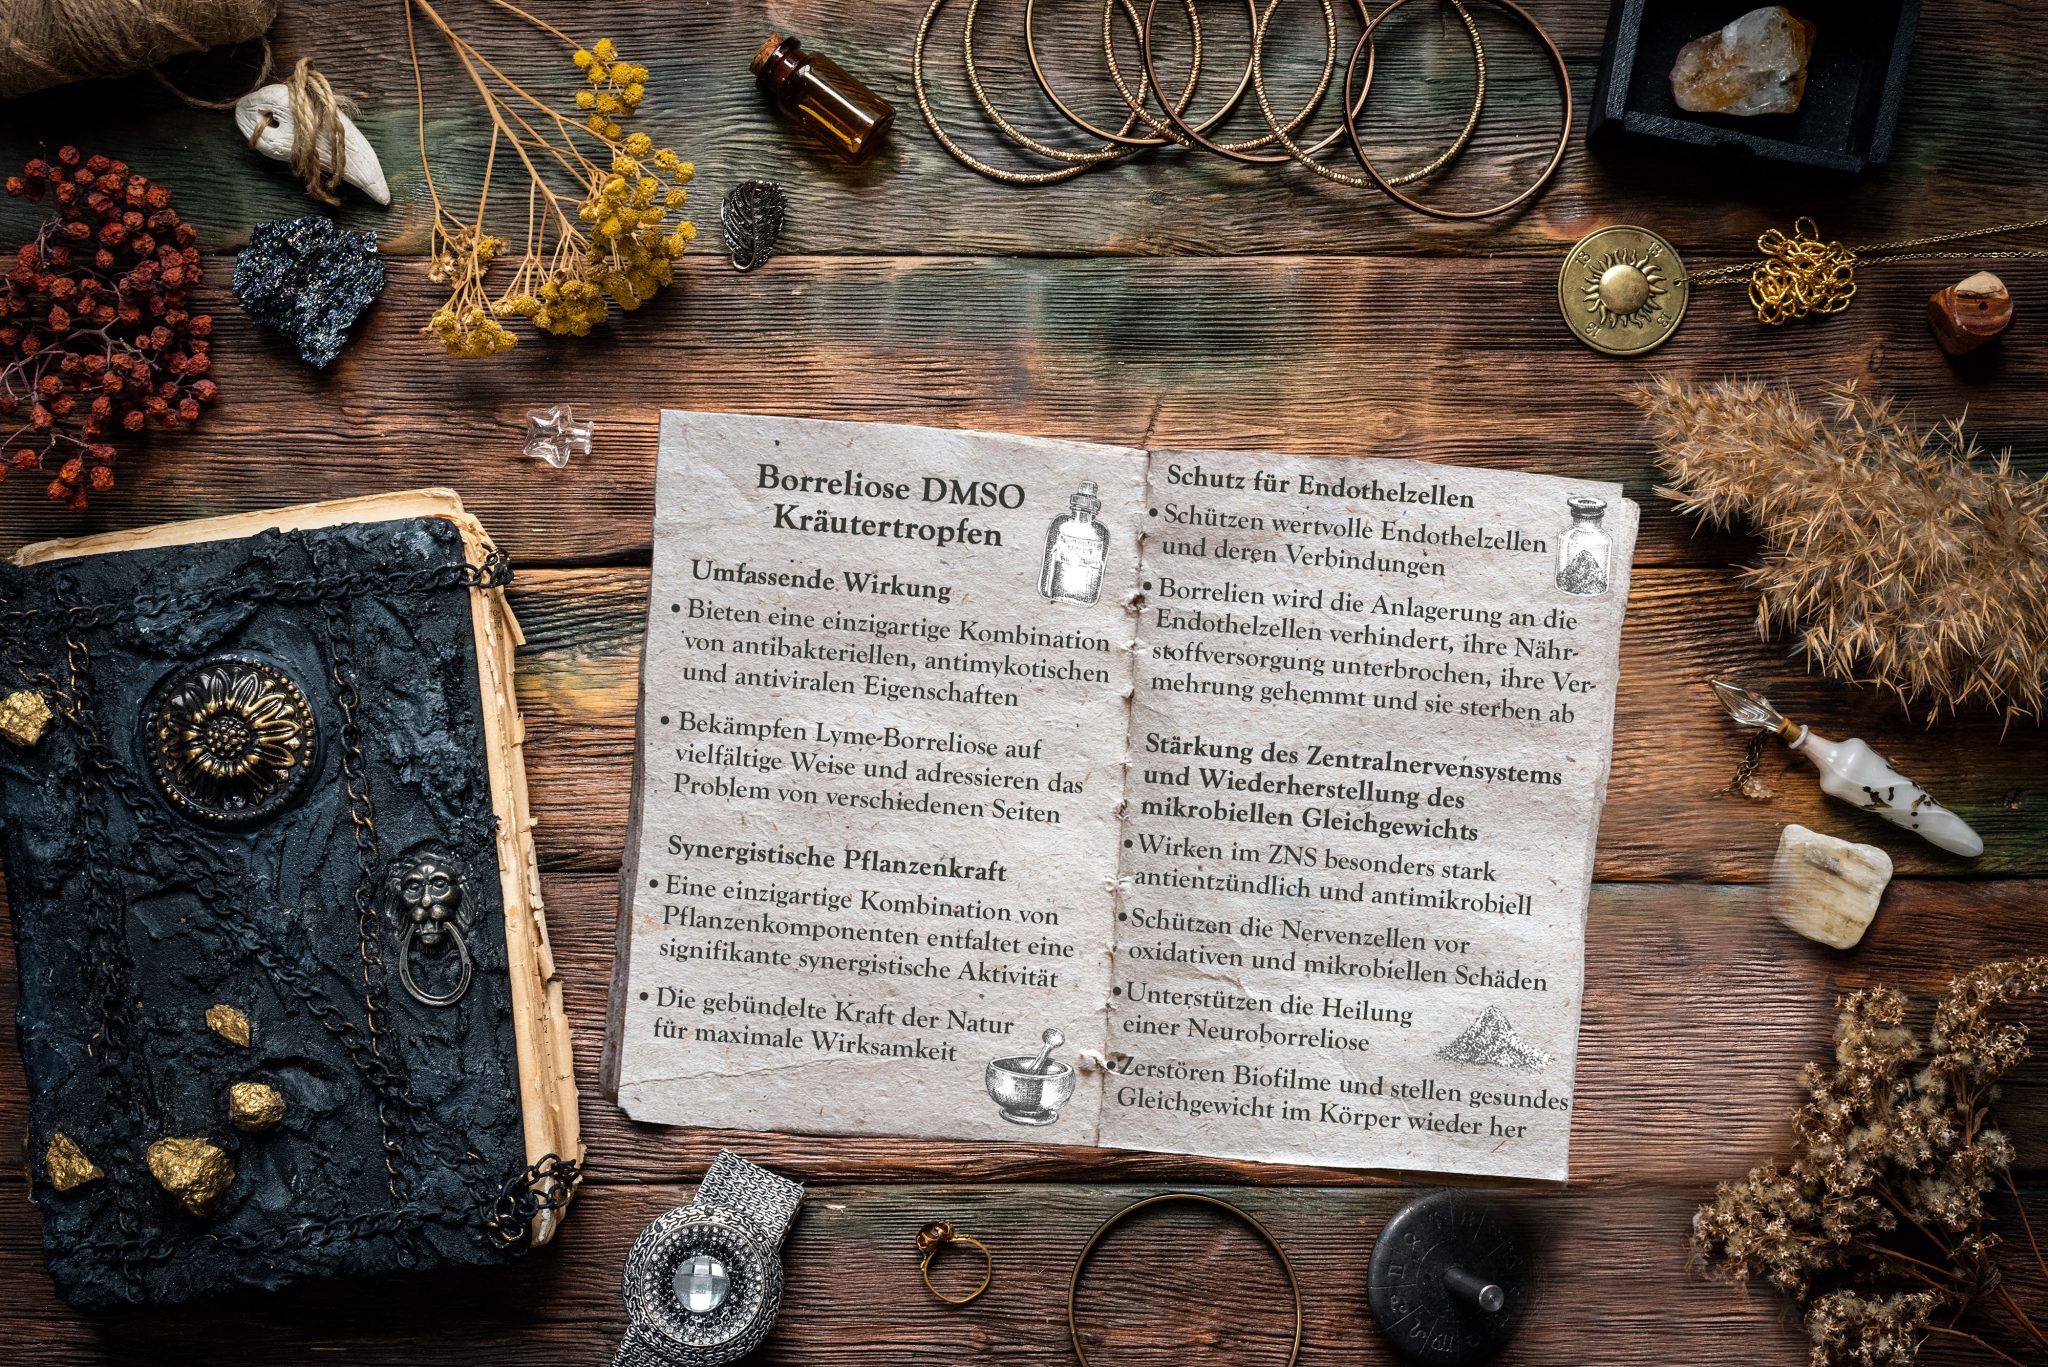 Borreliose DMSO
Kräutertropfen
Umfassende Wirkung
• Bieten eine einzigartige Kombination
von antibakteriellen, antimykotischen
und antiviralen Eigenschaften
• Bekämpfen Lyme-Borreliose auf
vielfältige Weise und adressieren das
Problem von verschiedenen Seiten
Synergistische Pflanzenkraft
• Eine einzigartige Kombination von
Pflanzenkomponenten entfaltet eine
signifikante synergistische Aktivität
• Die gebündelte Kraft der Natur
für maximale Wirksamkeit
Schutz für Endothelzellen
• Schützen wertvolle Endothelzellen
und deren Verbindungen
• Borrelien wird die Anlagerung an die
Endothelzellen verhindert, ihre Nähr-
stoffversorgung unterbrochen, ihre Ver-
mehrung gehemmt und sie sterben ab
Stärkung des Zentralnervensystems
und Wiederherstellung des
mikrobiellen Gleichgewichts
• Wirken im ZNS besonders stark
antientzündlich und antimikrobiell
• Schützen die Nervenzellen vor
oxidativen und mikrobiellen Schäden
• Unterstützen die Heilung
einer Neuroborreliose
• Zerstören Biofilme und stellen gesundes
Gleichgewicht im Körper wieder her